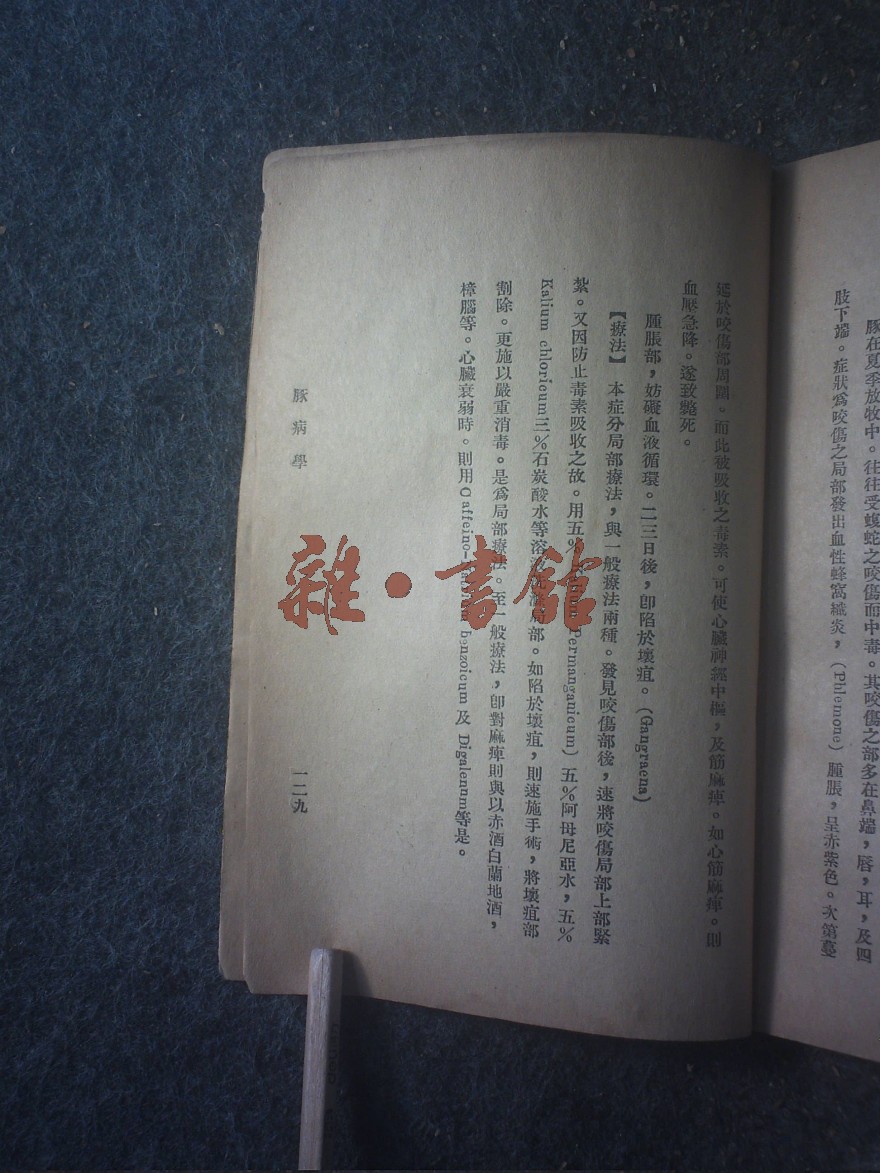 豚在夏季放牧中。往往受蝮蛇之咬傷而中毒。其咬傷之部多在鼻端，唇，耳，及四
肢下端。症狀爲咬傷之局部發出血性蜂窩織炎，（Phlemone）腫脹，呈赤紫色。次第蔓
延於咬傷部周圍。而此被吸收之毒素。可使心臟神經中樞，及筋麻痺。如心筋麻痺。則
血壓急降。遂致斃死。
腫脹部，妨礙血液循環。二三日後，卽陷於壞疽。（Gangraena）
【療法】　本症分局部療法，與一般療法兩種。發見咬傷部後，速將咬傷局部上部緊
紮。又因防止毒素吸收之故。用五% Permanganicum）五%阿母尼亞水，五%
Kalium chloricum三%石炭酸水等溶液洗滌局部。如陷於壞疽，則速施手術，將壞疽部
割除。更施以嚴重消毒。是爲局部療法。至一般療法，卽對麻痺則與以赤酒白蘭地酒，
樟腦等。心臟衰弱時。則用Caffeino- benzoicum 及 Digalenum等是。
豚病學
一二九
雜·書舘